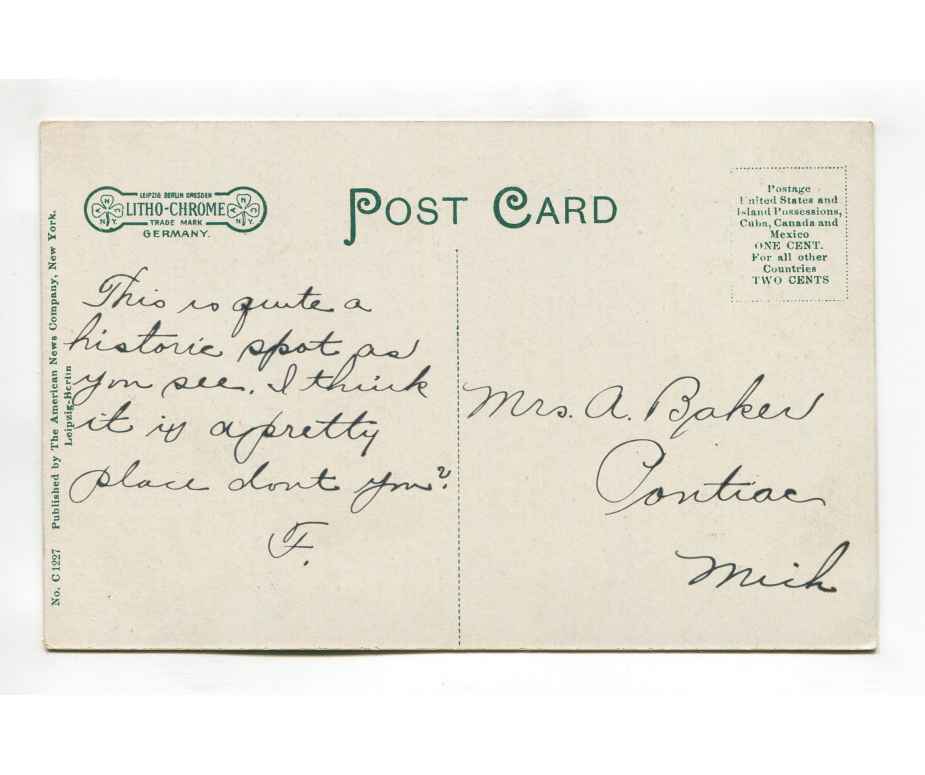 LEIPZIG BERLIN DRESDEN
LITHO-CHROME
TRADE MARK
GERMANY.
A N C
N.Y.
A N C
N.Y.
POST CARD
Postage
United States and
Island Possessions,
Cuba, Canada and
Mexico
ONE CENT.
For all other
Countries
TWO CENTS
No. C 1227 Published by The American News Company, New York.
Leipzig-Berlin
This is quite a
historic spot as
you see. I think
it is a pretty
place dont you?
F.
Mrs. A. Baker
Pontiac
Mich